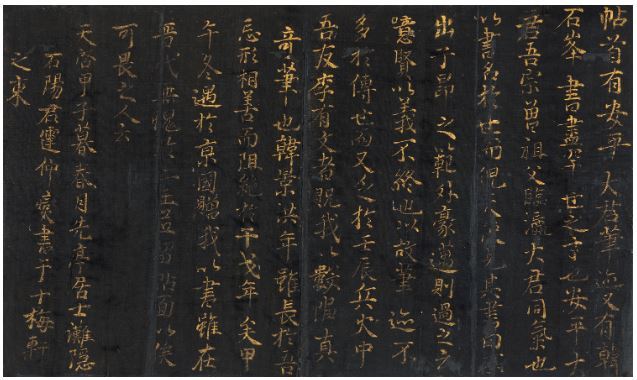 帖首有安平大君筆迹又有韓
石峯書畫罕世之宝也安平大
君吾宗曾祖父臨瀛大君同氣也
以書名於世而見其書自
出于昂之範外豪逸則過之云
噫賢以義不終也以故筆迹不
多於傳世而又失於壬辰兵火中
吾友李有文者貺我以數幅真
奇筆也韓景洪年雖長於吾
忘形相善而阻絶於干戈年矣甲
午冬遇於京國贈我以書雖在
晋代無愧於二王豈面以俟
可畏之人云
天啓甲子暮春月先亭居士灘隱
石陽君霆仲燮書于十梅軒
之東